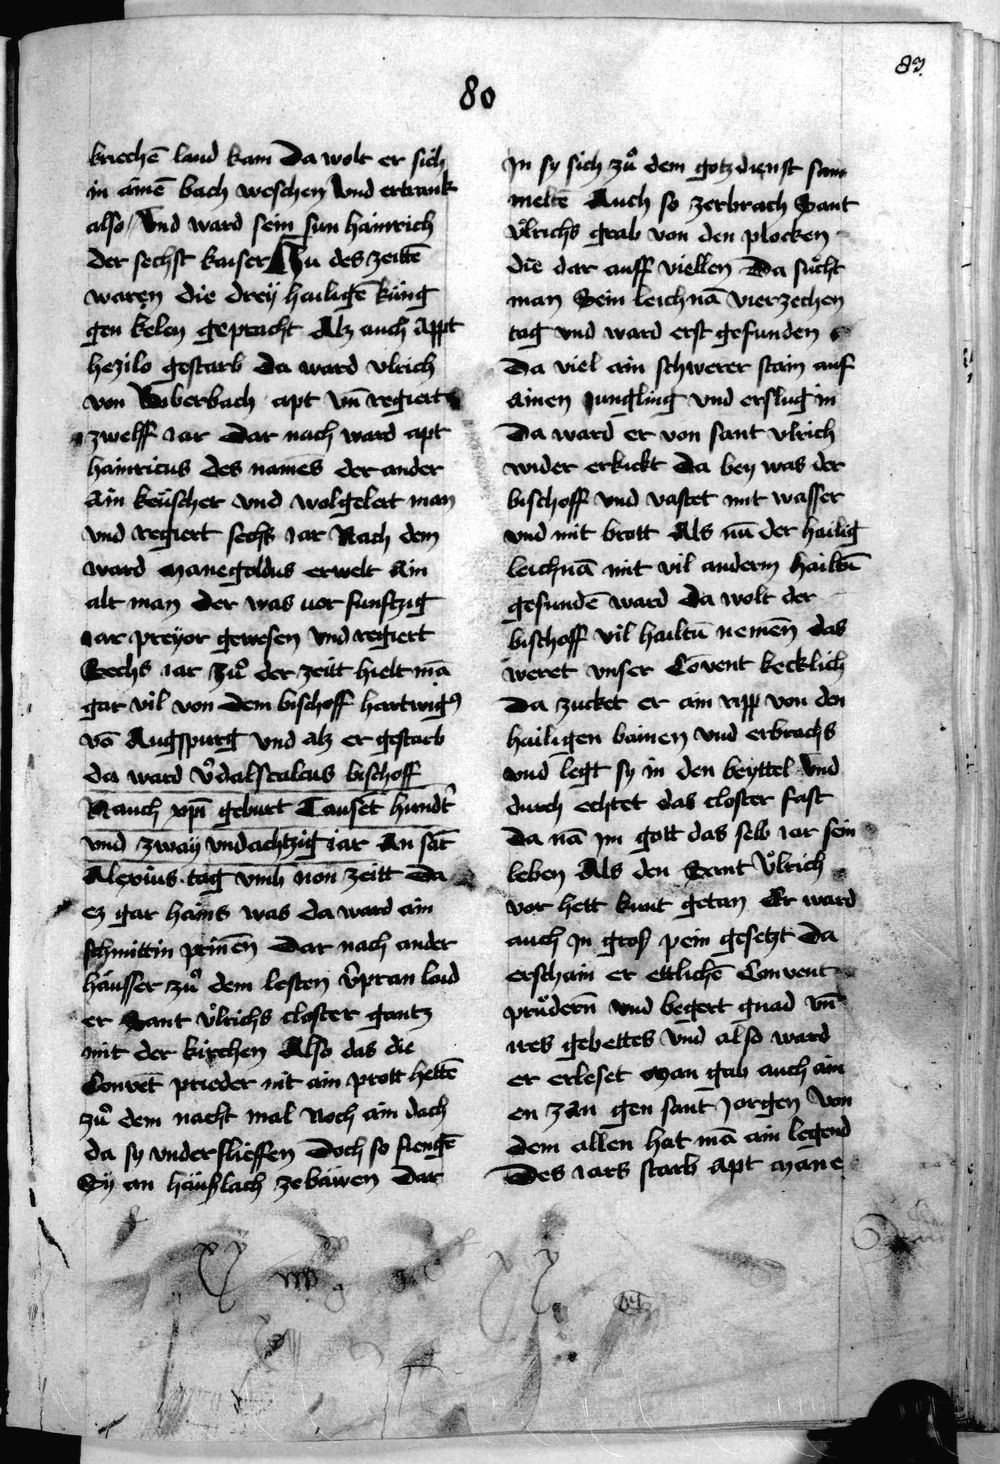 83
80
kriechē land kam Da wolt er sich
in ainē bach weschen Vnd ertrank
also / Vnd ward sein sun hainrich
der sechst kaiser Zu des zeittē
waren die dreÿ hailigē küng
gen kelen gepracht Alz auch appt
hezilo gestarb Da ward vlrich
von Biberbach apt vñ regiert
zwelff iar Dar nach ward apt
hainricus des names der ander
Ain keüscher vnd wolgelert man
vnd regiert sechs iar Nach dem
ward manegoldus erwelt Ain
alt man Der was uor funftzig
iar preyor gewesen vnd regiert
Sechs iar Zů der zeitt hielt mā
gar vil von dem bischoff hartwigꝰ
vō Augspurg vnd alz er gestarb
da ward vͦdalscalcus bischoff
Nauch xpī geburt Tauset hundt
vnd zwaÿ vndachtzig iar An sāt
Alexius tag vmb non zeitt Da
ez gar haiss was da ward ain
schmittin prinēn Dar nach ander
häusser zů dem lesten v̈pran laid
er Sant vͦlrichs closter gantz
mit der kirchen Also das die
Convēt prieder nit ain prott hettē
zů dem nacht mal Noch ain dach
da sy vnderslieffen Doch so fiengē
Sÿ an häuslach ze bäwen Dar
In sy sich zů dem gotzdienst sam
meltē Auch so zerbrach Sant
vͦlrichs grab von den plocken
die dar auff viellen Da sücht
man Sein leichnā vierzechen
tag vnd ward erst gefunden
Da viel ain schwerer stain auf
ainen jungling vnd erslug in
Da ward er von sant vlrich
wider erkickt Da bey was der
bischoff vnd vastet mit wasser
vnd mit brott Als nū der hailig
leichnā mit vil anderm hailtū
gefundē ward Da wolt der
bischoff vil hailtū nemen das
weret vnser Covent kecklich
Da zucket er ain ripp von den
hailigen bainen vnd erbrachs
vnd legt sy in den beyttel Vnd
durch echtet das closter fast
Da nā im gott das selb iar sein
leben Als den Sant vͦlrich
vor hett kunt getan Er ward
auch In gros pein gesetzt Da
erschain er ettlichē Convent
prüdern vnd begert gnad vñ
ires gebettes Vnd also ward
er erleset Man gab auch ain
en zan gen sant Jorgen Von
dem allen hat mā ain legend
Des iars starb apt mane